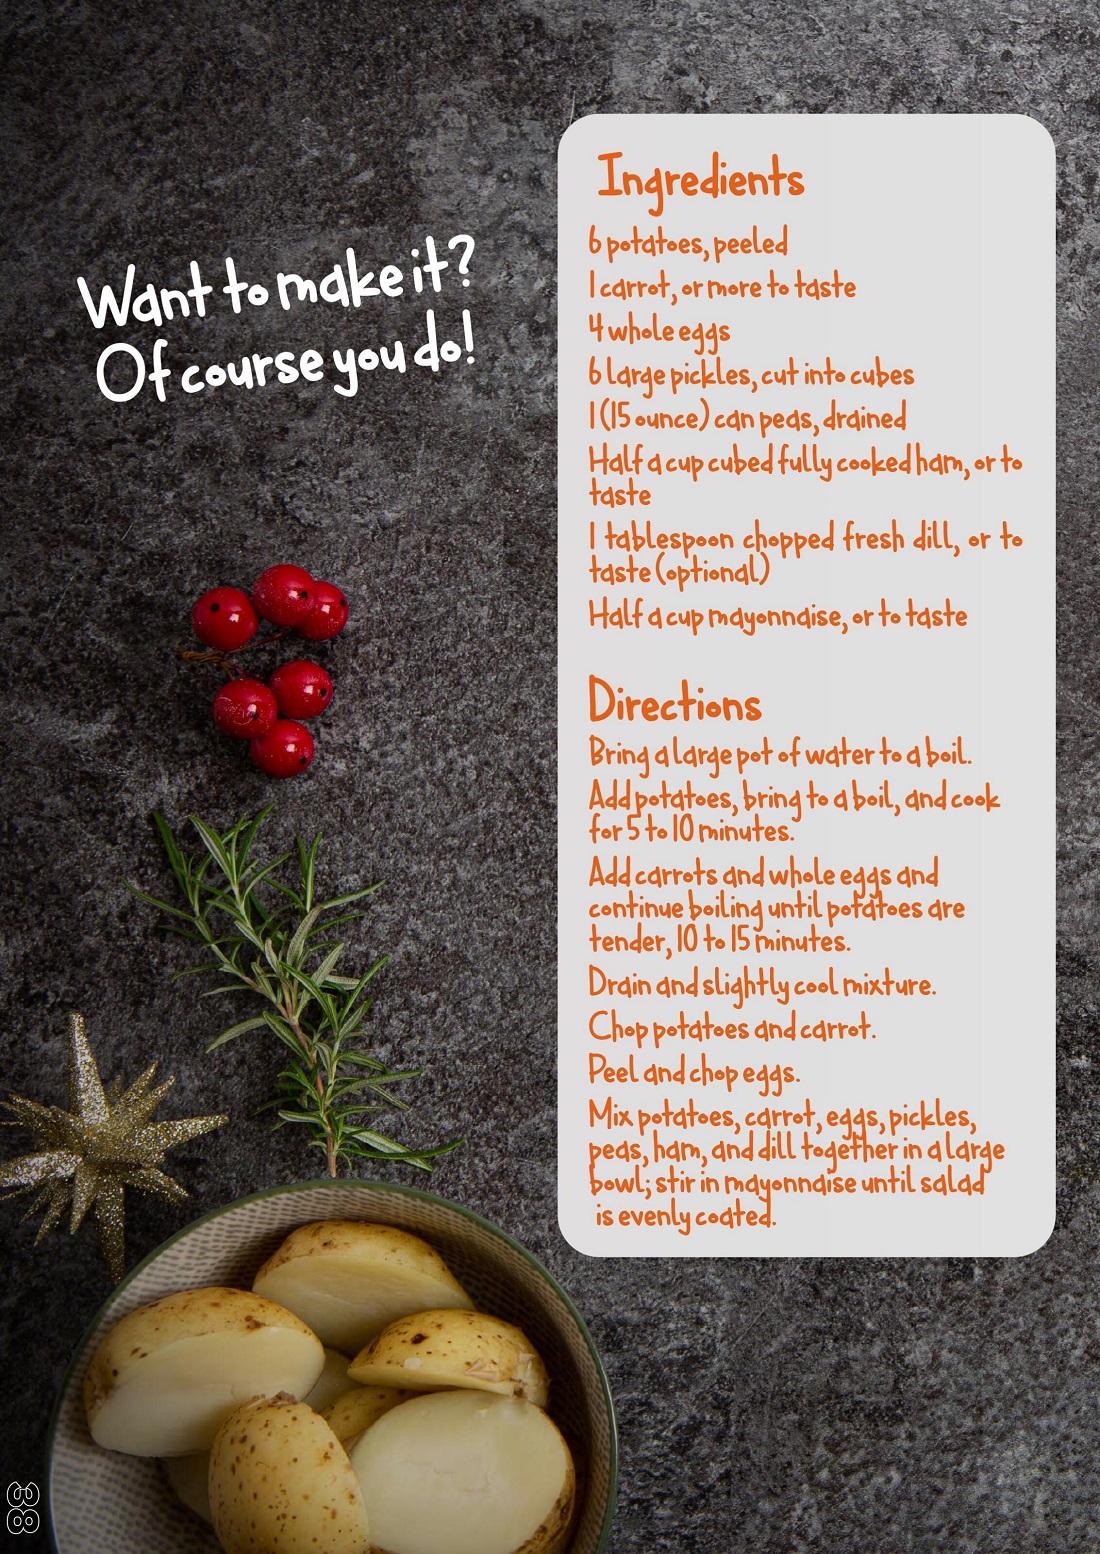 Want to make it?
Of course you do!
Ingredients
6 potatoes, peeled
1 carrot, or more to taste
4 whole eggs
6 large pickles, cut into cubes
1 (15 ounce) can peas, drained
Half a cup cubed fully cooked ham, or to
taste
1 tablespoon chopped fresh dill, or to
taste (optional)
Half a cup mayonnaise, or to taste
Directions
Bring a large pot of water to a boil.
Add potatoes, bring to a boil, and cook
for 5 to 10 minutes.
Add carrots and whole eggs and
continue boiling until potatoes are
tender, 10 to 15 minutes.
Drain and slightly cool mixture.
Chop potatoes and carrot.
Peel and chop eggs.
Mix potatoes, carrot, eggs, pickles,
peas, ham, and dill together in a large
bowl; stir in mayonnaise until salad
is evenly coated.
38